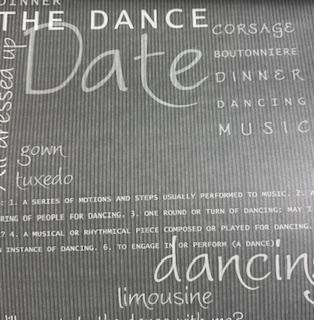 DINNER
THE DANCE
Date
CORSAGE
BOUTONNIERE
DINNER
DANCING
MUSIC
All dressed up
gown
tuxedo
: 1. A SERIES OF MOTIONS AND STEPS USUALLY PERFORMED TO MUSIC. 2.
RING OF PEOPLE FOR DANCING. 3. ONE ROUND OR TURN OF DANCING: MAY I
? 4. A MUSICAL OR RHYTHMICAL PIECE COMPOSED OR PLAYED FOR DANCING.
N INSTANCE OF DANCING. 6. TO ENGAGE IN OR PERFORM (A DANCE)
dancing
limousine
to the dance with me?